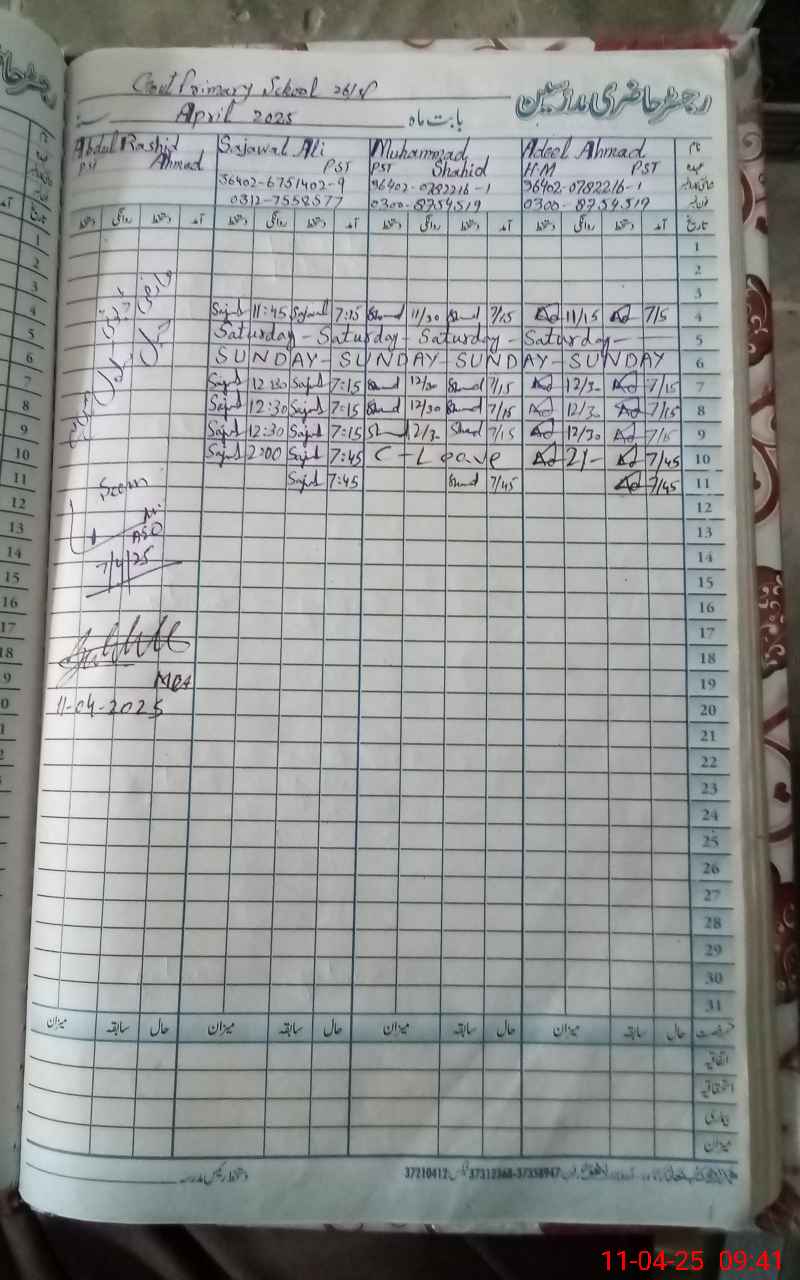 Govt Primary School 26/
رجسٹر حاضری مدرسین
April 2025 بابت ماہ
Abdul Rashid Ahmad PST
Sajawal Ali PST
36402-6751402-9
0312-7558577
Muhammad Shahid PST
36402-0782216-1
0300-8754519
Adeel Ahmad H.M PST
36402-0782216-1
0300-8754519
نام
عہدہ
تاریخ
آمد دستخط روانگی دستخط آمد دستخط روانگی دستخط آمد دستخط روانگی دستخط آمد دستخط روانگی دستخط
1
2
3
Sajad 11:45 Sajawal 7:15 11/30 7/15 Ad 11/15 Ad 7/15 4
Saturday - Saturday - Saturday - Saturday - 5
SUNDAY - SUNDAY - SUNDAY - SUNDAY 6
Sajad 12:30 Sajad 7:15 12/30 7/15 Ad 12/30 Ad 7/15 7
Sajad 12:30 Sajad 7:15 12/30 7/15 Ad 12/30 Ad 7/15 8
Sajad 12:30 Sajad 7:15 12/30 7/15 Ad 12/30 Ad 7/15 9
Sajad 2:00 Sajad 7:45 C-Leave Ad 2/- Ad 7/45 10
Sajad 7:45 7/45 Ad 7/45 11
Seen
ASO
7/4/25
MEA
11-04-2025
12
13
14
15
16
17
18
19
20
21
22
23
24
25
26
27
28
29
30
31
رخصت حال سابقہ میزان حال سابقہ میزان حال سابقہ میزان حال سابقہ میزان
اتفاقیہ
استحقاقیہ
بیماری
میزان
دستخط رئیس مدرسہ
37210412 37312368-37358947
11-04-25 09:41